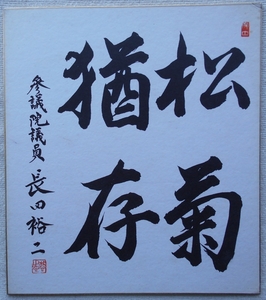 松菊
猶存
参議院議員 長田裕二